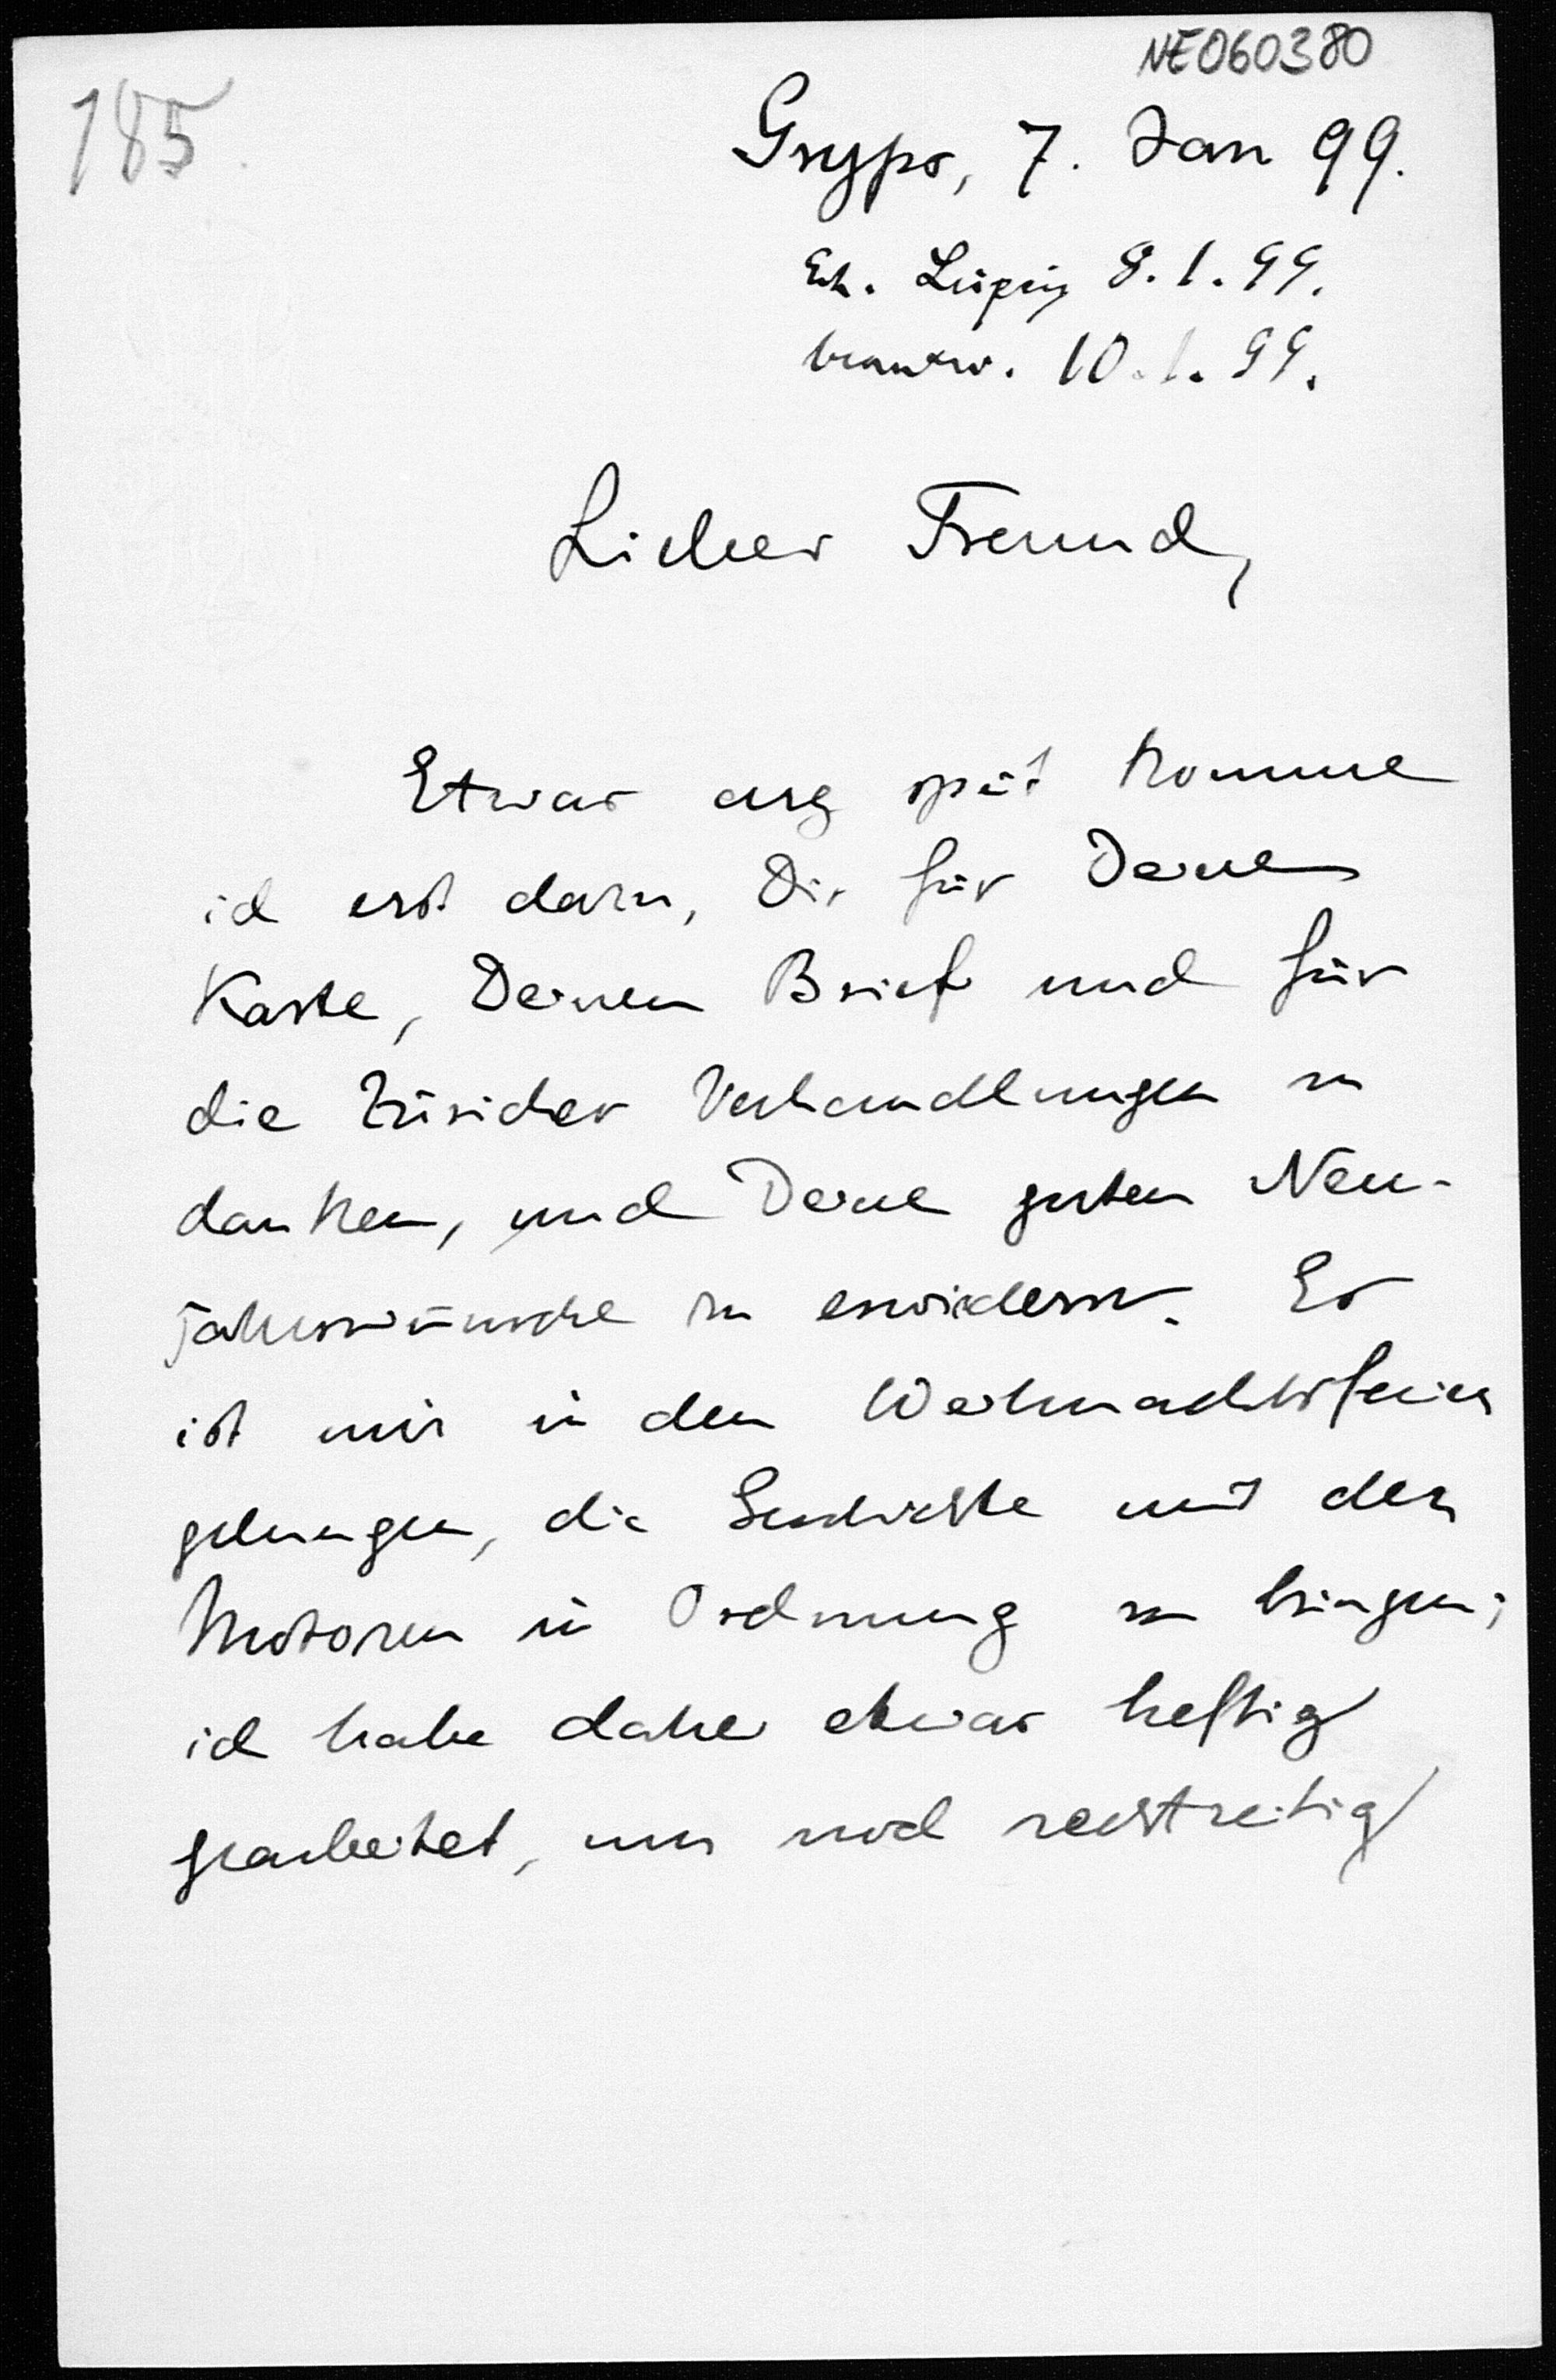 NE060380
185
Gryps, 7. Jan 99.
Erh. Leipzig 8.1.99.
beantw. 10.1.99.
Lieber Freund,
Etwas arg spät komme
ich erst dazu, Dir für Deine
Karte, Deinen Brief und für
die Züricher Verhandlungen zu
danken, und Deine guten Neu-
jahrswünsche zu erwidern. Es
ist mir in den Weihnachtsferien
gelungen, die Geschichte mit den
Motoren in Ordnung zu bringen;
ich habe dabei etwas heftig
gearbeitet, um noch rechtzeitig